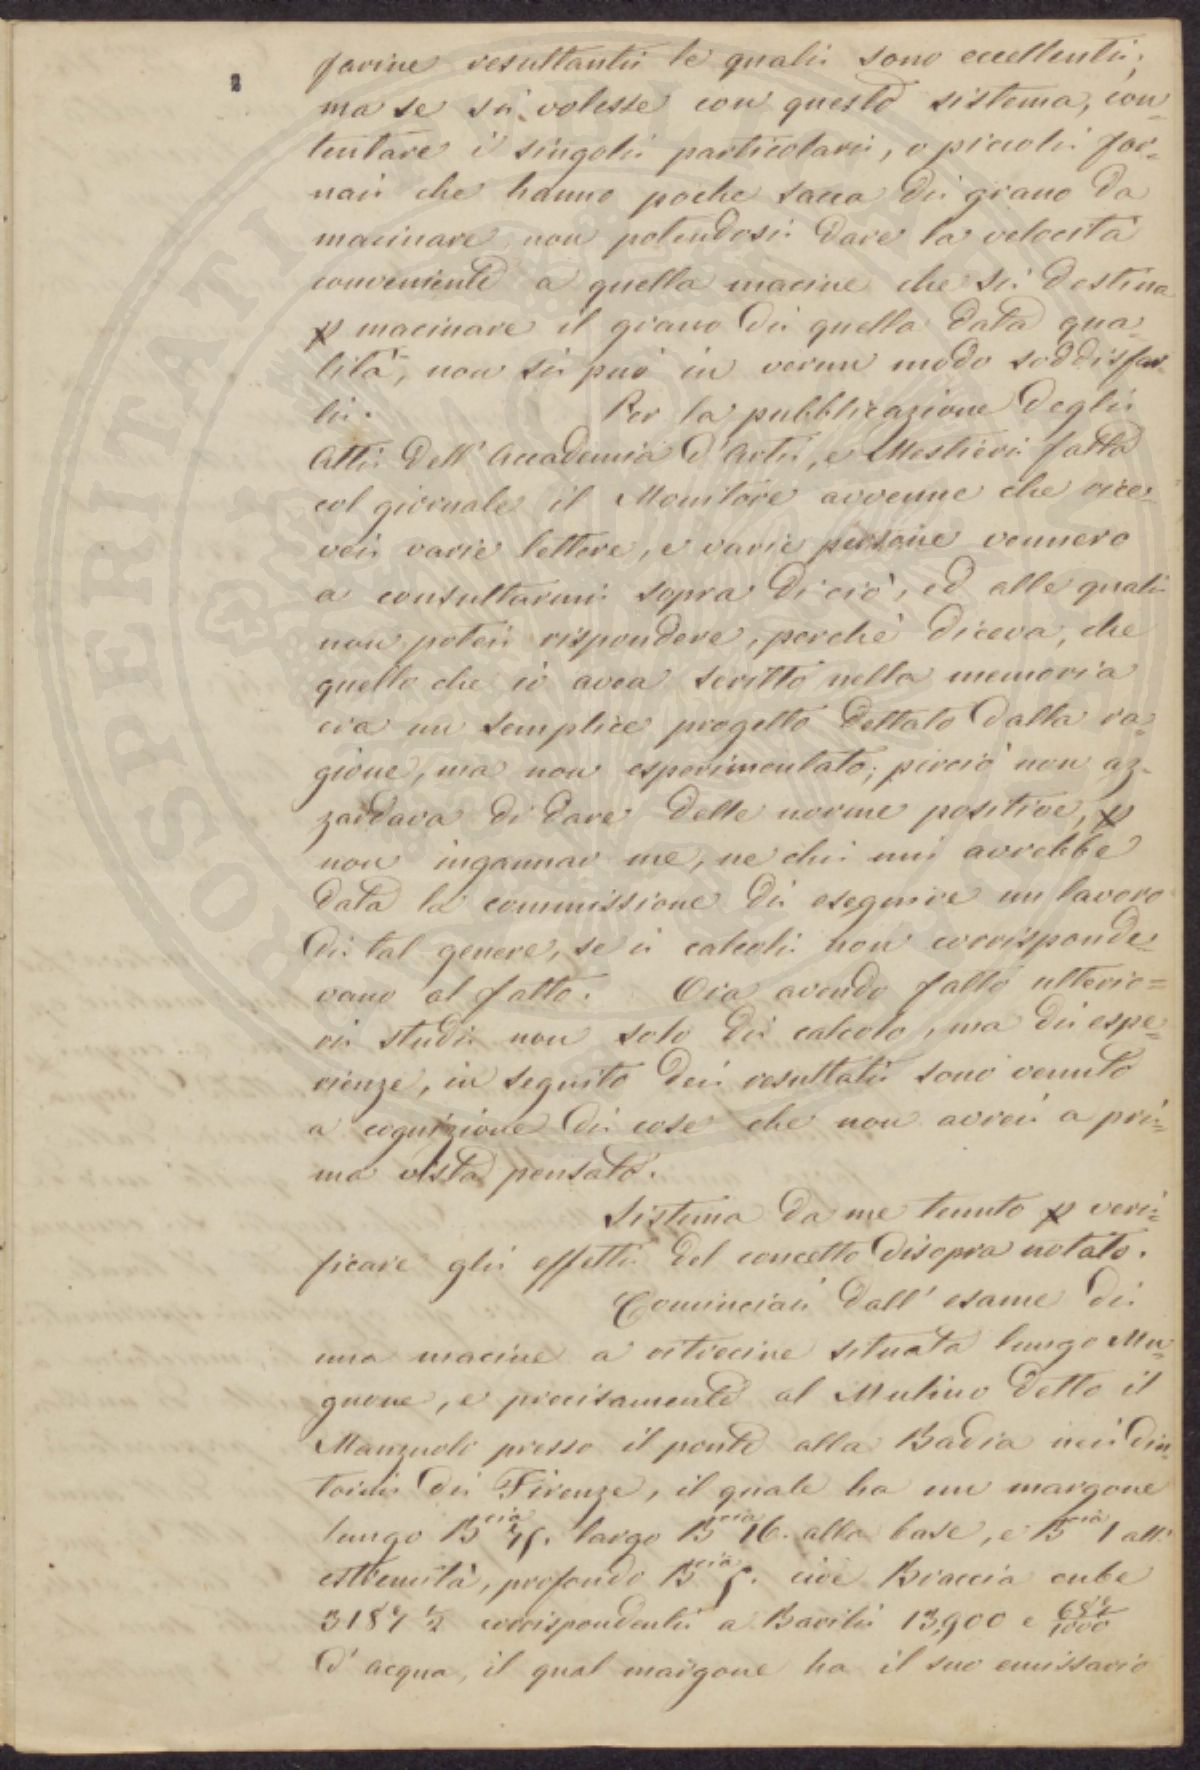 farine resultanti le quali sono eccellenti;
ma se si volesse con questo sistema, con=
tentare i singoli particolari, o piccoli for=
nai che hanno poche sacca di grano da
macinare, non potendosi dare la velocità
conveniente a quella macine che si destina
p macinare il grano di quella data qua=
lità, non si può in verun modo soddisfar=
li. Per la pubblicazione degli
Atti dell' Accademia d'Arti, e Mestieri fatta
col giornale il Monitore avvenne che rice=
vei varie lettere, e varie persone vennero
a consultarmi sopra di ciò, ed alle quali
non potei rispondere, perchè diceva, che
quello che io avea scritto nella memoria
era un semplice progetto dettato dalla ra=
gione, ma non esperimentato; perciò non az=
zardava di dare delle norme positive, p
non ingannar me, ne chi mi avrebbe
data la commissione di eseguire un lavoro
di tal genere, se i calcoli non corrisponde=
vano al fatto. Ora avendo fatto ulterio=
ri studi non solo di calcolo, ma di espe=
rienze, in seguito dei resultati sono venuto
a cognizione di cose che non avrei a pri=
ma vista pensato.
Sistema da me tenuto p veri=
ficare gli effetti del concetto disopra notato.
Cominciai dall' esame di
una macine a ritrecine situata lungo Mu=
gnone, e precisamente al Mulino detto il
Manzuoli presso il ponte alla Badia nei din=
torni di Firenze, il quale ha un margone
lungo B.cia largo B.cia 16. alla base, e B.cia 1 all'
estremità, profondo B.cia 5. cioè Braccia cube
3187 ½ corrispondenti a Barili 13,900 e
d' acqua, il qual margone ha il suo emissario
PROSPERITATI